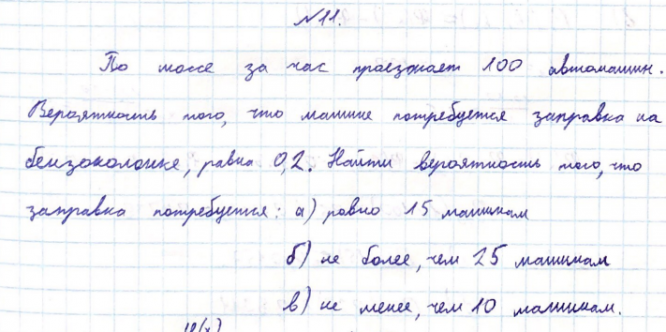 №11.
По шоссе за час проезжает 100 автомашин.
Вероятность того, что машине потребуется заправка на
бензоколонке, равна 0,2. Найти вероятность того, что
заправка потребуется: а) равно 15 машинам
б) не более, чем 25 машинам
в) не менее, чем 10 машинам.